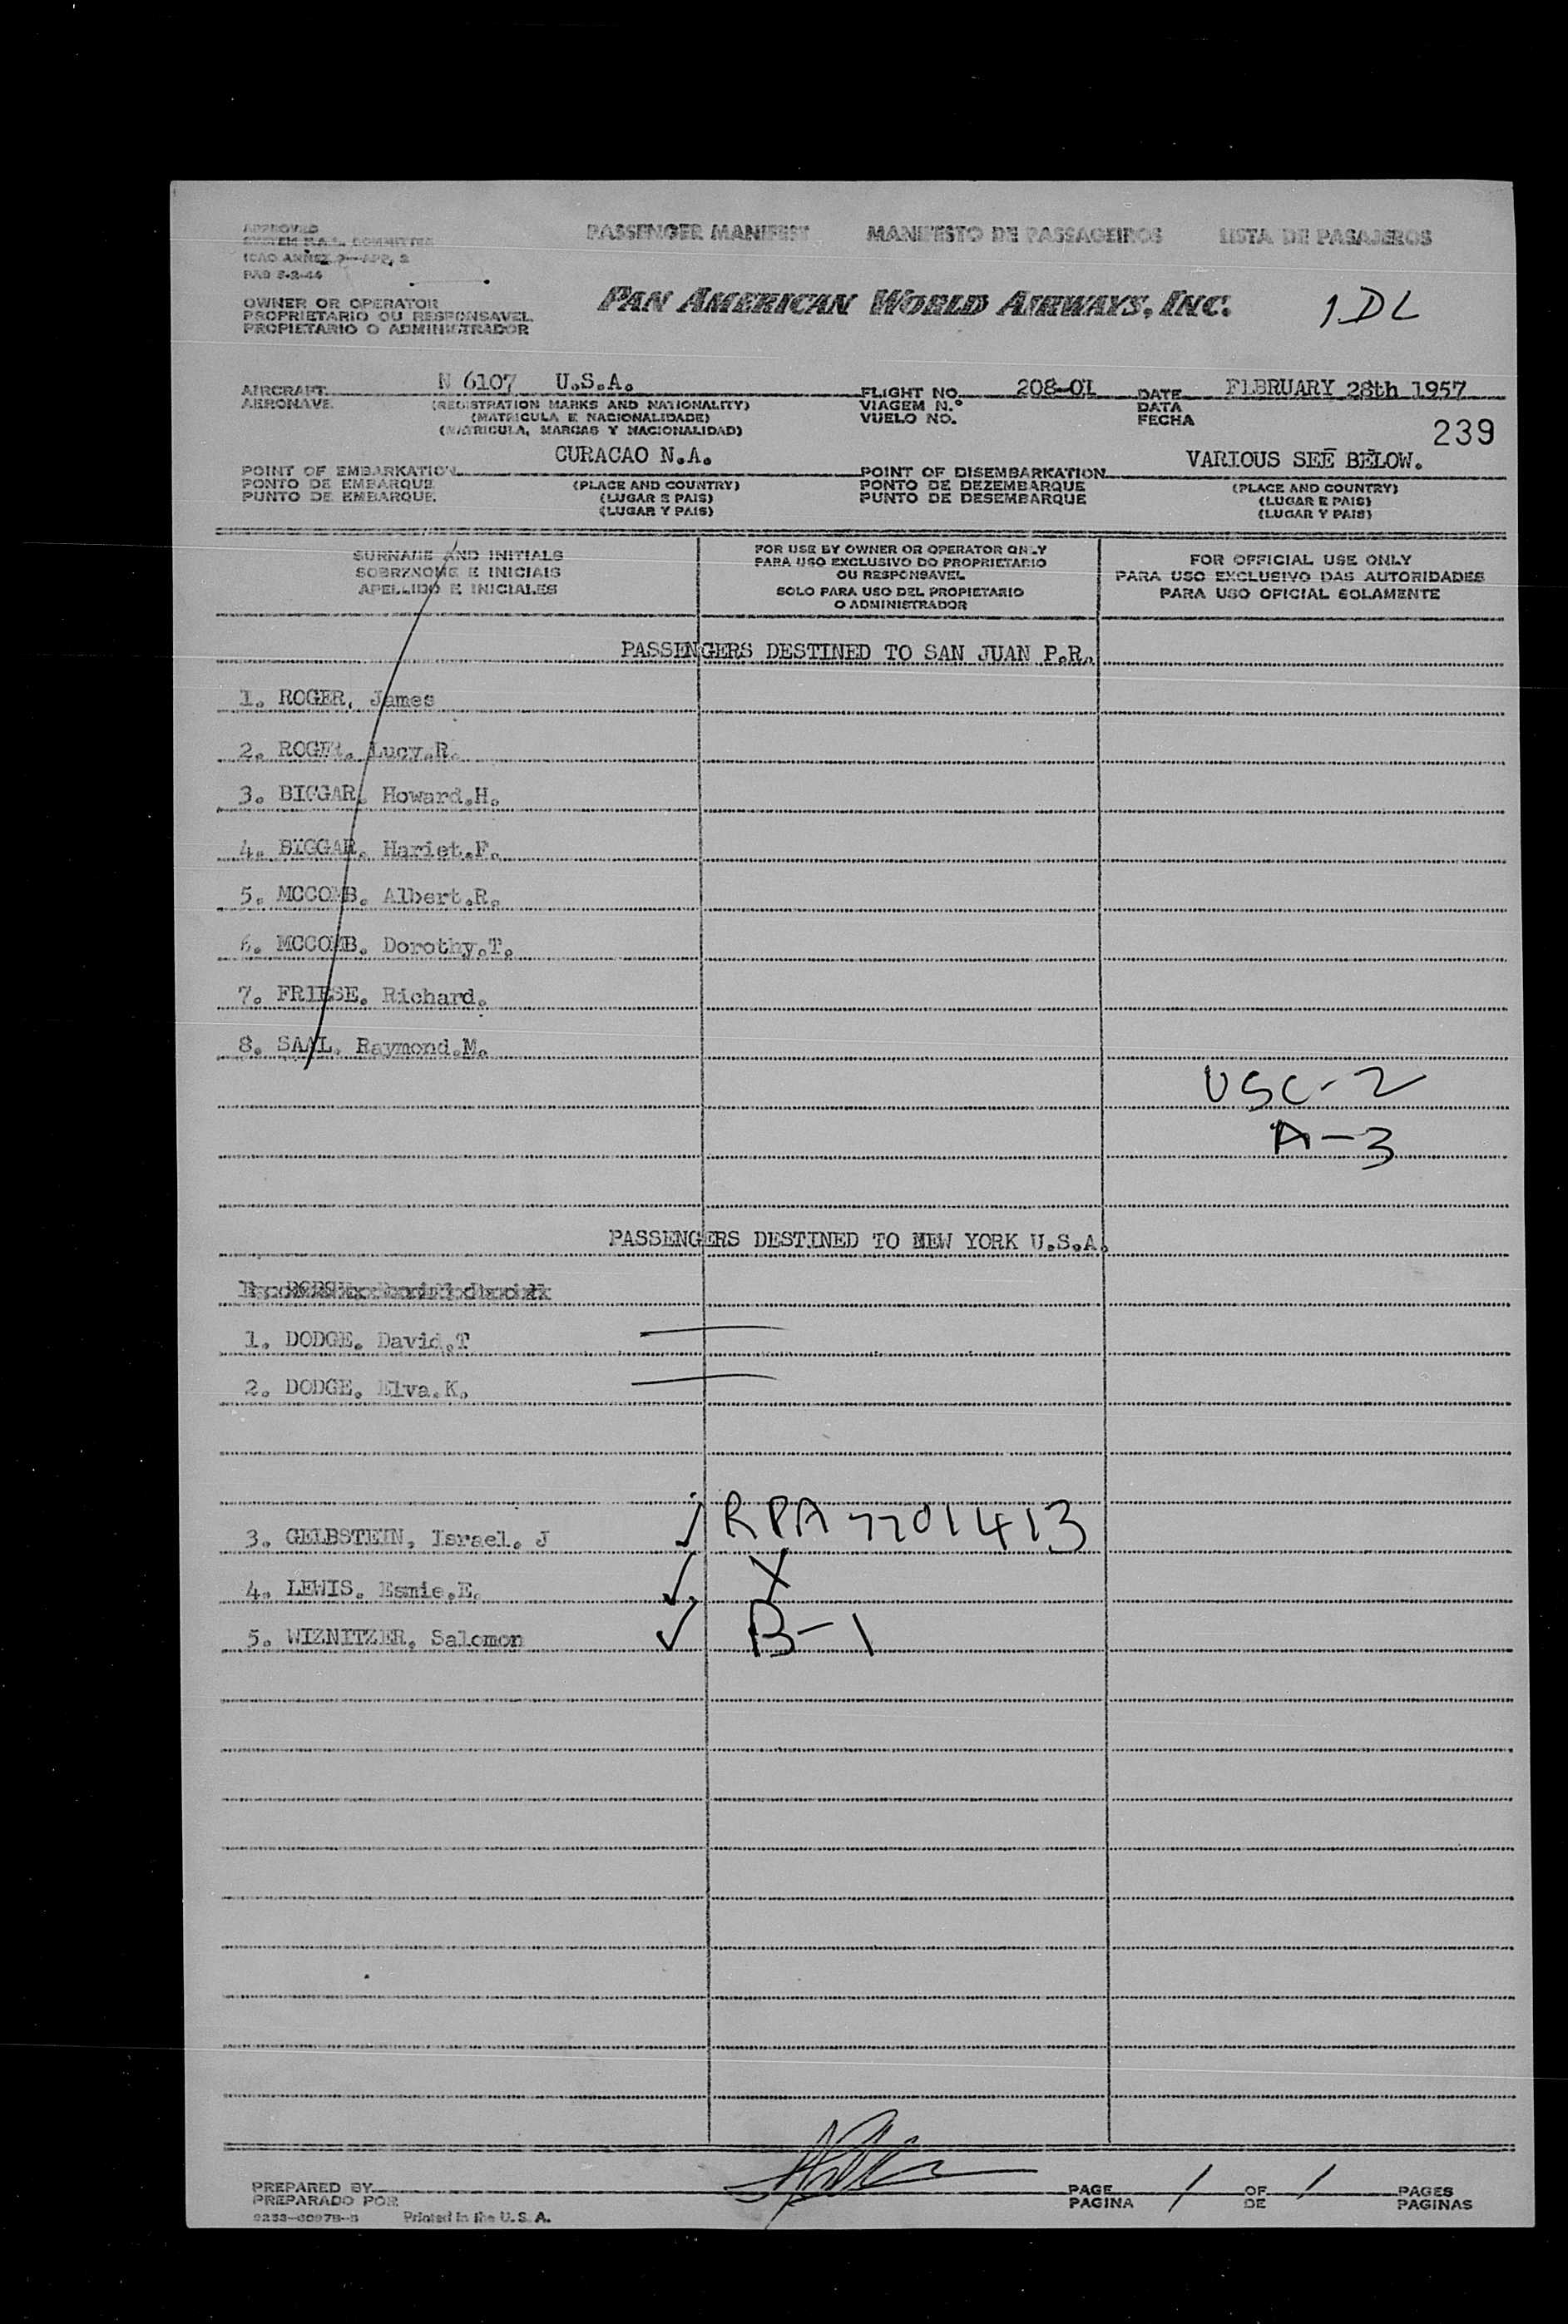 APPROVED
SYSTEM M.A.L. COMMITTEE
ICAO ANNEX 9—APP. 2
PAD 5-2-44
PASSENGER MANIFEST MANIFESTO DE PASSAGEIROS LISTA DE PASAJEROS
OWNER OR OPERATOR
PROPRIETARIO OU RESPONSAVEL
PROPIETARIO O ADMINISTRADOR
PAN AMERICAN WORLD AIRWAYS, INC.
1DL
AIRCRAFT N 6107 U.S.A. FLIGHT NO. 208-01 DATE FEBRUARY 28th 1957
AERONAVE (REGISTRATION MARKS AND NATIONALITY) VIAGEM N.° DATA
(MATRICULA E NACIONALIDADE) VUELO NO. FECHA
(MATRICULA, MARCAS Y NACIONALIDAD)
239
POINT OF EMBARKATION CURACAO N.A. POINT OF DISEMBARKATION VARIOUS SEE BELOW.
PONTO DE EMBARQUE (PLACE AND COUNTRY) PONTO DE DEZEMBARQUE (PLACE AND COUNTRY)
PUNTO DE EMBARQUE (LUGAR E PAIS) PUNTO DE DESEMBARQUE (LUGAR E PAIS)
(LUGAR Y PAIS) (LUGAR Y PAIS)
SURNAME AND INITIALS
SOBRENOME E INICIAIS
APELLIDO E INICIALES
FOR USE BY OWNER OR OPERATOR ONLY
PARA USO EXCLUSIVO DO PROPRIETARIO
OU RESPONSAVEL
SOLO PARA USO DEL PROPIETARIO
O ADMINISTRADOR
FOR OFFICIAL USE ONLY
PARA USO EXCLUSIVO DAS AUTORIDADES
PARA USO OFICIAL SOLAMENTE
PASSENGERS DESTINED TO SAN JUAN P.R.
1. ROGER, James
2. ROGER. Lucy.R.
3. BIGGAR. Howard.H.
4. BIGGAR. Hariet.F.
5. MCCOMB. Albert.R.
6. MCCOMB. Dorothy.T.
7. FRIESE. Richard.
8. SAAL. Raymond.M.
USC-2
A-3
PASSENGERS DESTINED TO NEW YORK U.S.A.
1. DODGE. David.T
2. DODGE. Elva.K.
3. GELBSTEIN, Israel. J ✓ RPA 7701413
4. LEWIS. Esmie.E. ✓ X
5. WIZNITZER, Salomon ✓ B-1
PREPARED BY PAGE 1 OF 1 PAGES
PREPARADO POR PAGINA DE PAGINAS
Printed in the U.S.A.